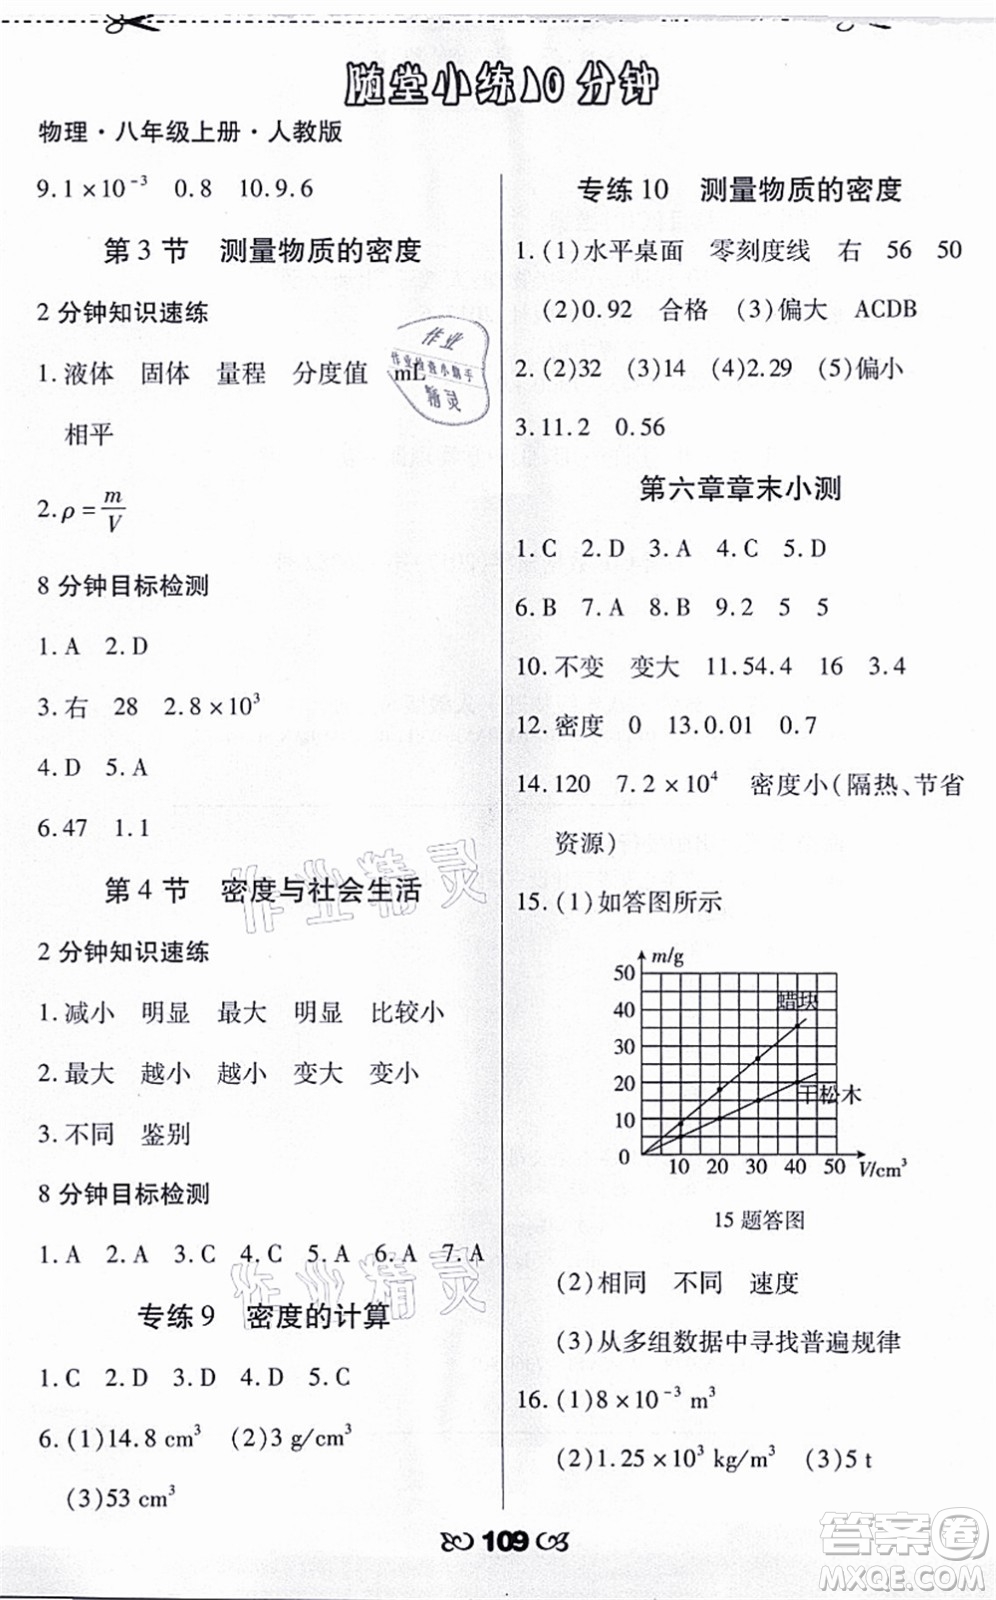 随堂小练10分钟
物理·八年级上册·人教版
9.1×10⁻³ 0.8 10.9.6
第3节 测量物质的密度
2分钟知识速练
1.液体 固体 量程 分度值 mL
相平
2.ρ=m/V
8分钟目标检测
1.A 2.D
3.右 28 2.8×10³
4.D 5.A
6.47 1.1
第4节 密度与社会生活
2分钟知识速练
1.减小 明显 最大 明显 比较小
2.最大 越小 越小 变大 变小
3.不同 鉴别
8分钟目标检测
1.A 2.A 3.C 4.C 5.A 6.A 7.A
专练9 密度的计算
1.C 2.D 3.D 4.D 5.C
6.(1)14.8 cm³ (2)3 g/cm³
(3)53 cm³
专练10 测量物质的密度
1.(1)水平桌面 零刻度线 右 56 50
(2)0.92 合格 (3)偏大 ACDB
2.(2)32 (3)14 (4)2.29 (5)偏小
3.11.2 0.56
第六章章末小测
1.C 2.D 3.A 4.C 5.D
6.B 7.A 8.B 9.2 5 5
10.不变 变大 11.54.4 16 3.4
12.密度 0 13.0.01 0.7
14.120 7.2×10⁴ 密度小(隔热、节省
资源)
15.(1)如答图所示
m/g
50
40
30
20
10
0
蜡块
干松木
10 20 30 40 50 V/cm³
15题答图
(2)相同 不同 速度
(3)从多组数据中寻找普遍规律
16.(1)8×10⁻³ m³
(2)1.25×10³ kg/m³ (3)5 t
109
作业
作业检查小助手
精灵
作业精灵
作业精灵
答案圈
MXQE.COM